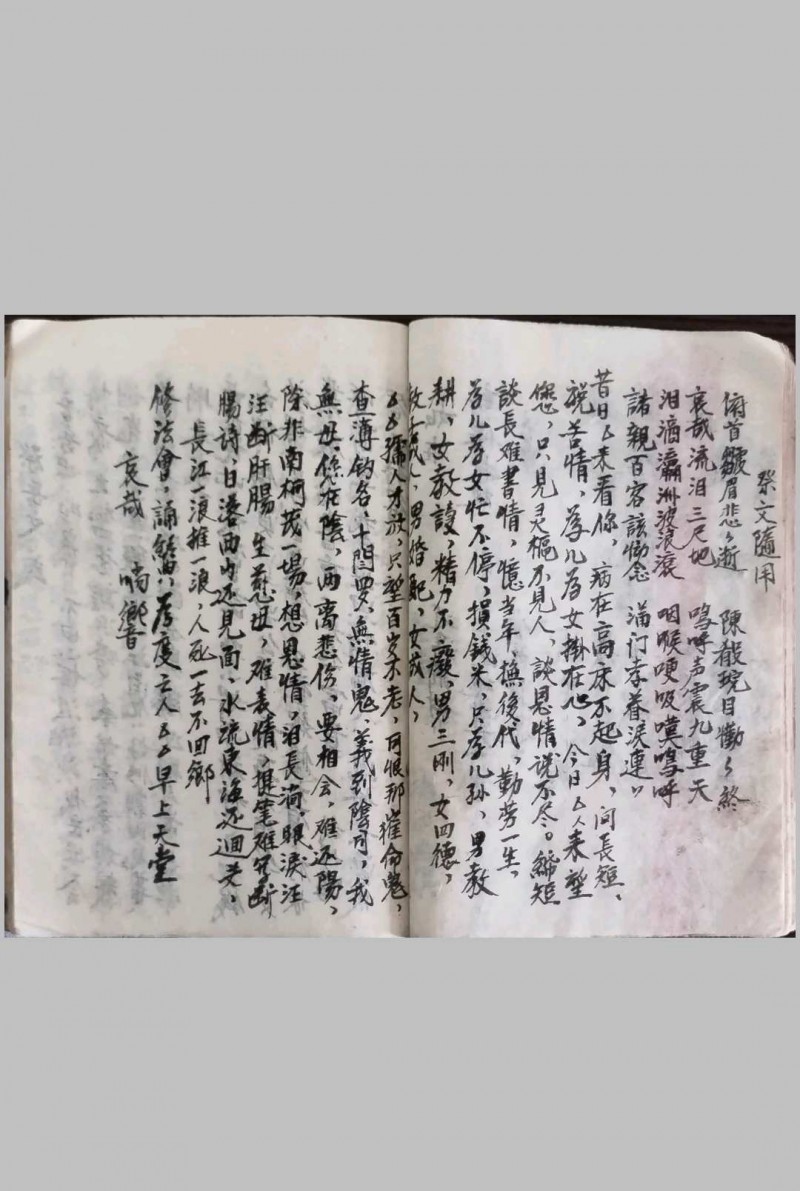 祭文隨用
俯首皺眉悲〻逝　陳設琬目懶〻終
哀哉流泪三尺地　嗚呼声震九重天
泪滴瀛洲波浪滾　咽喉哽吸嘆嗚呼
諸親百客該慟念　滿门孝眷淚連〃
昔日厶来看你，病在高床不起身，问長短、
說苦情，為儿為女掛在心，今日厶人来望
您，只見灵樞不見人，談恩情说不尽。締短
談長难書情，憶当年，撫後代，勤劳一生，
為儿為女忙不停，損錢米，只為儿孙，男教
耕，女教設，精力不廢，男三刚，女四德，
教子成人，男婚配，女成人，
厶厶孺人才放，只望百岁不老，可恨那催命鬼，
查簿钓名，十閆罗，無情鬼，義到陰司，我
無母，您在陰，两离悲伤，要相会，难还陽，
除非南柯夢一場，想恩情，泪長淌，眼淚汪
汪断肝腸，生慈母，难表情，提笔难写断
腸詩，日落西山还見面，水流東海还迴头，
長江一浪推一浪，人死一去不回鄉
修法會，誦 為度亡人厶厶早上天堂
哀哉　尚響